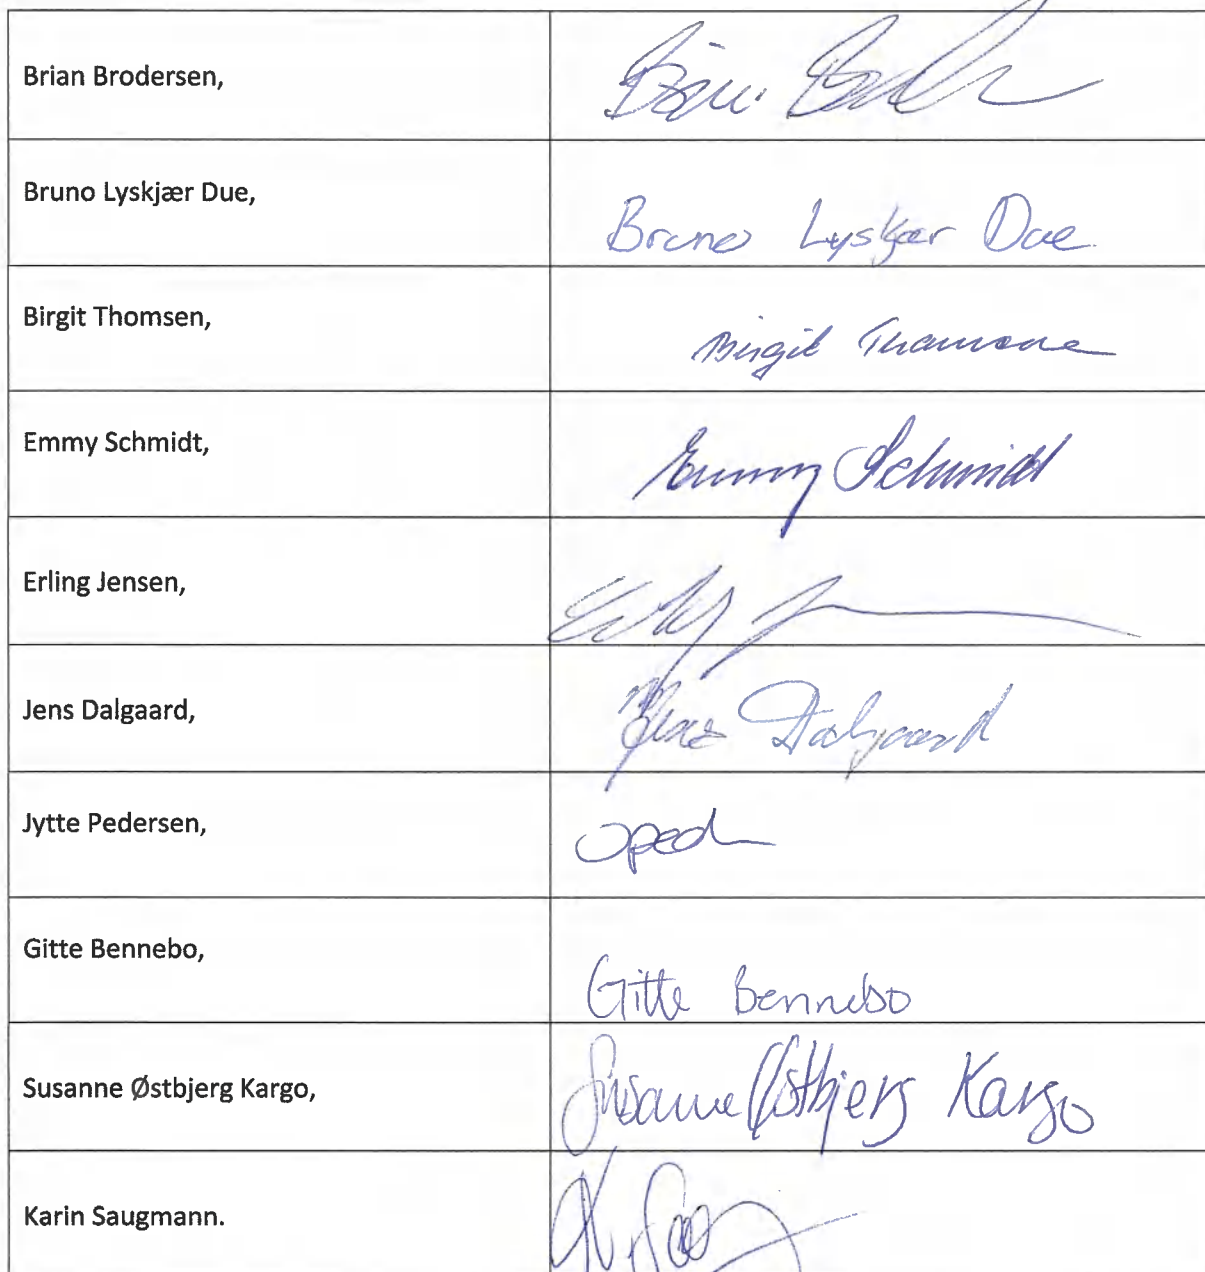 Brian Brodersen,
Bruno Lyskjær Due, Bruno Lyskjær Due
Birgit Thomsen, Birgit Thomsen
Emmy Schmidt, Emmy Schmidt
Erling Jensen,
Jens Dalgaard, Jens Dalgaard
Jytte Pedersen,
Gitte Bennebo, Gitte Bennebo
Susanne Østbjerg Kargo, Susanne Østbjerg Kargo
Karin Saugmann.